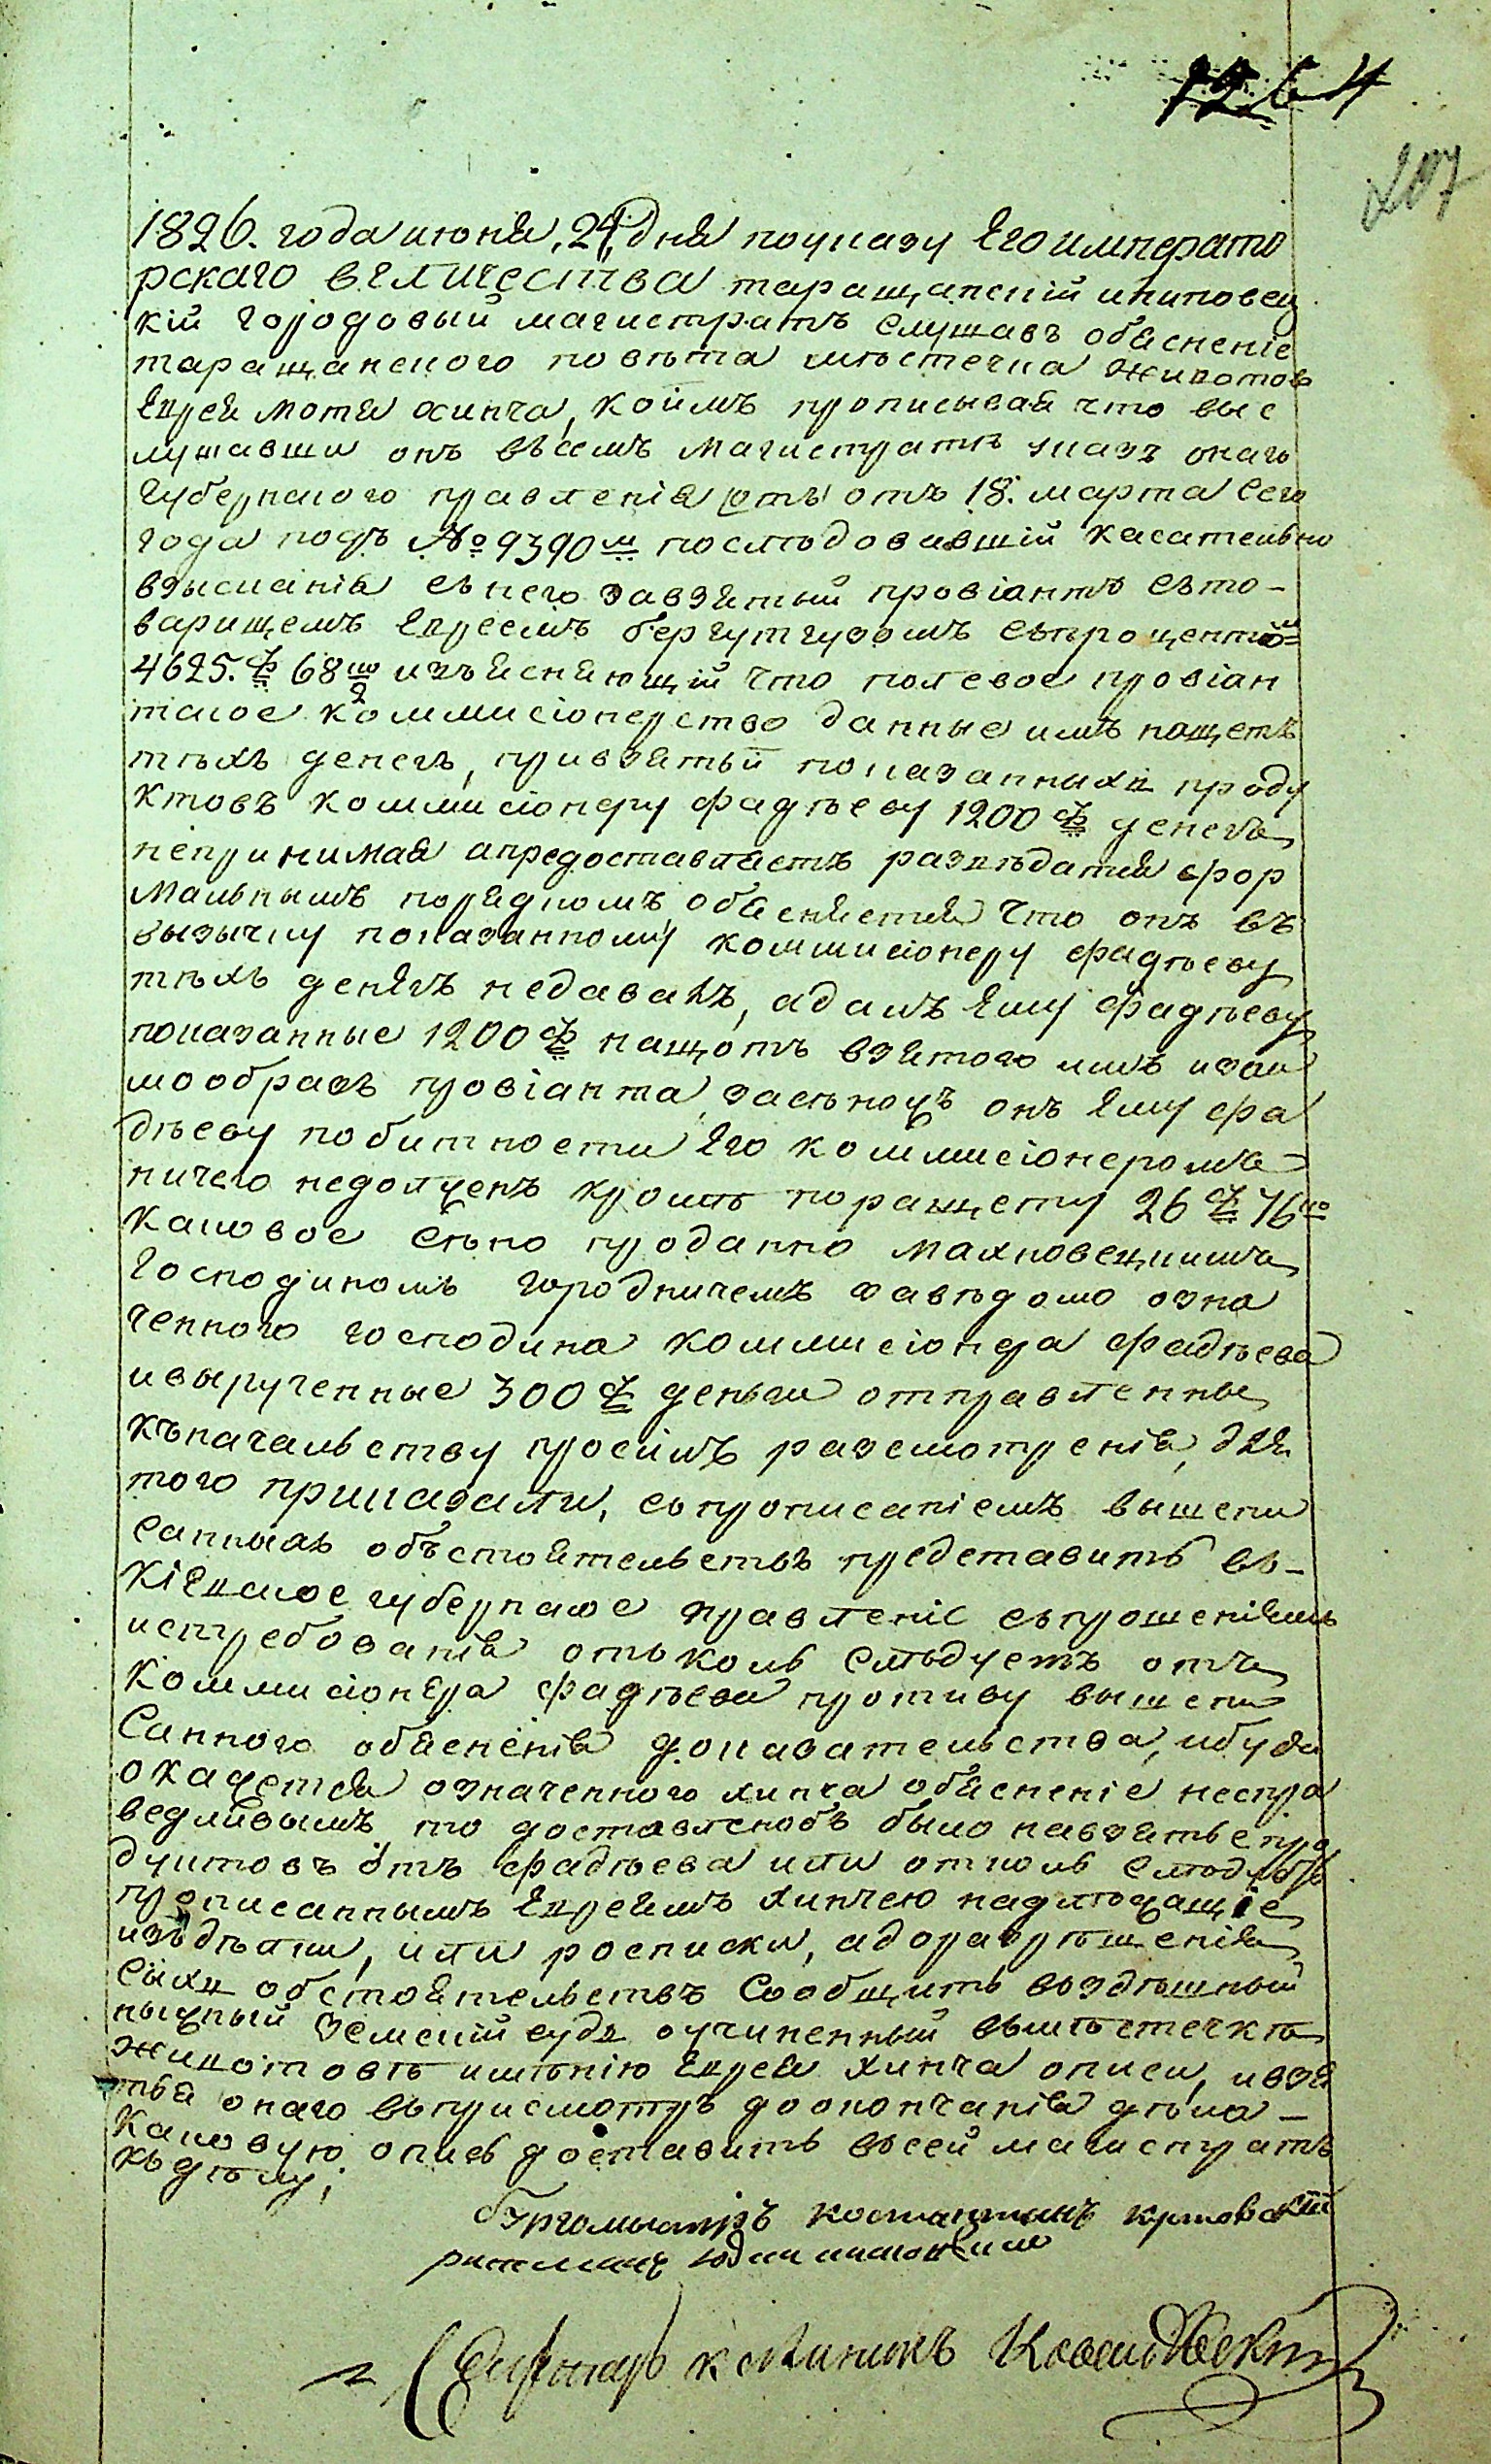 1264
207
1826. года июня, 24, дня поуказу Его императо
рскаго величества таращанскій илиповец
кій городовый магистратъ слушавъ обясненіе
таращанского повѣта мѣстечка животов
Еврея мотя хинча, коимъ прописывая что выс
лушавши онъ всемъ магистратѣ указъ онаго
губернского правленія отъ 18. марта сего
года подъ № 9390м последовавшій касательно
взысканія снего завзятый провіантъ сто-
варищемъ Евреемъ бергутгузомъ спроцентом
4625. р 68 ко изъясняющій что полевое провіан
тское коммисіонерство данные имъ нащетъ
тѣхъ денегъ, привзятьи показанныхъ проду
ктовъ коммисіонеру фадѣеву 1200 р денегъ
непринимая апредоставляетъ развѣдатся фор
мальнымъ порядкомъ, обясняется что онъ въ
зызычку показанному коммисіонеру фадѣеву
тѣхъ денягъ недавалъ, адалъ Ему фадѣеву
показанные 1200 р нащотъ взятого имъ
мообразъ провіанта, засѣножъ онъ Ему фа
дѣеву побитности Его коммисіонеромъ
ничего недолженъ кромѣ поращету 26 р 76 ко
каковое сѣно проданно махновецкимъ
Господиномъ городничемъ завѣдомо озна
ченного господина коммисіонера фадѣева
ивырученные 300 р деньги отправленны
къначальству просилъ разсмотренія, для
того приказали, спрописаніемъ вышепи
санныхъ обьстоятельствъ представить въ-
кіевское губернское правленіе спрошеніемъ
истребованія отьколь слѣдуетъ отъ
коммисіонера фадѣева противу вышепи
санного обясненія доказательства, ибуде
окажется означенного хинча обясненіе неспра
ведливымъ то доставленобъ было навзятье про
дуктовъ отъ фадѣева или отколь слѣдуетъ
прописаннымъ Евреемъ хинчею надлѣжащіе
изъдѣлки, или росписки, адоразрѣшенія
сихъ обстоятельствъ сообщить въздѣшный
нижный земскій судъ оучиненный вмѣстечкѣ
животовѣ имѣнію Еврея хинча описи, ивзя
тья онаго вприсмотръ доокончанія дѣла-
каковую опись доставить всей магистратъ
къдѣлу;
бургомыстръ костантынъ
ратманъ
Секретарь